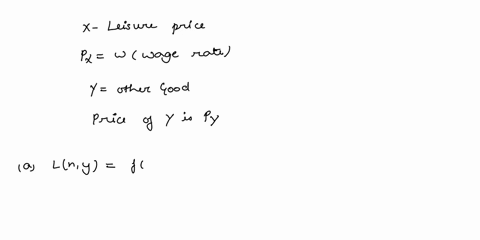 x- Leisure price
Px = w (wage rate)
Y = other Good
Price of Y is Py
(a) L(n,y) = f(